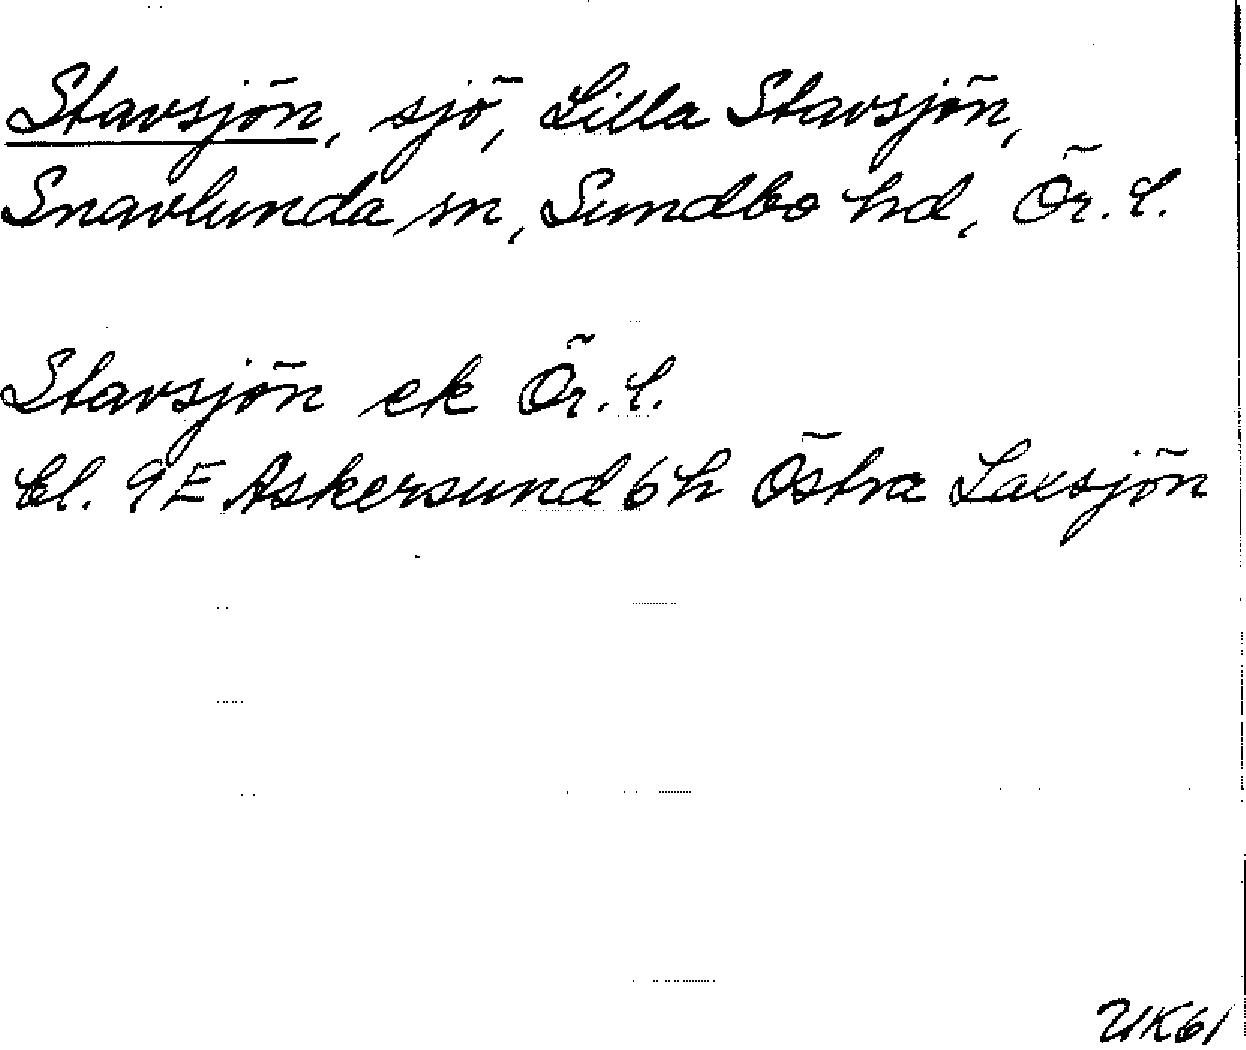 Stavsjön, sjö, Lilla Stavsjön,
Snavlunda sn, Sundbo hd, Ör. l.
Stavsjön ek Ör. l.
bl. 9E Askersund 6h Östra Laxsjön
UK61